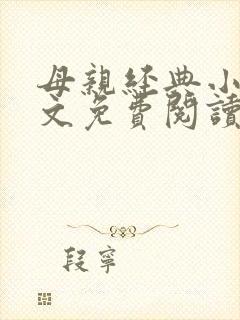 母親經典小
文免費閱讀
段寧